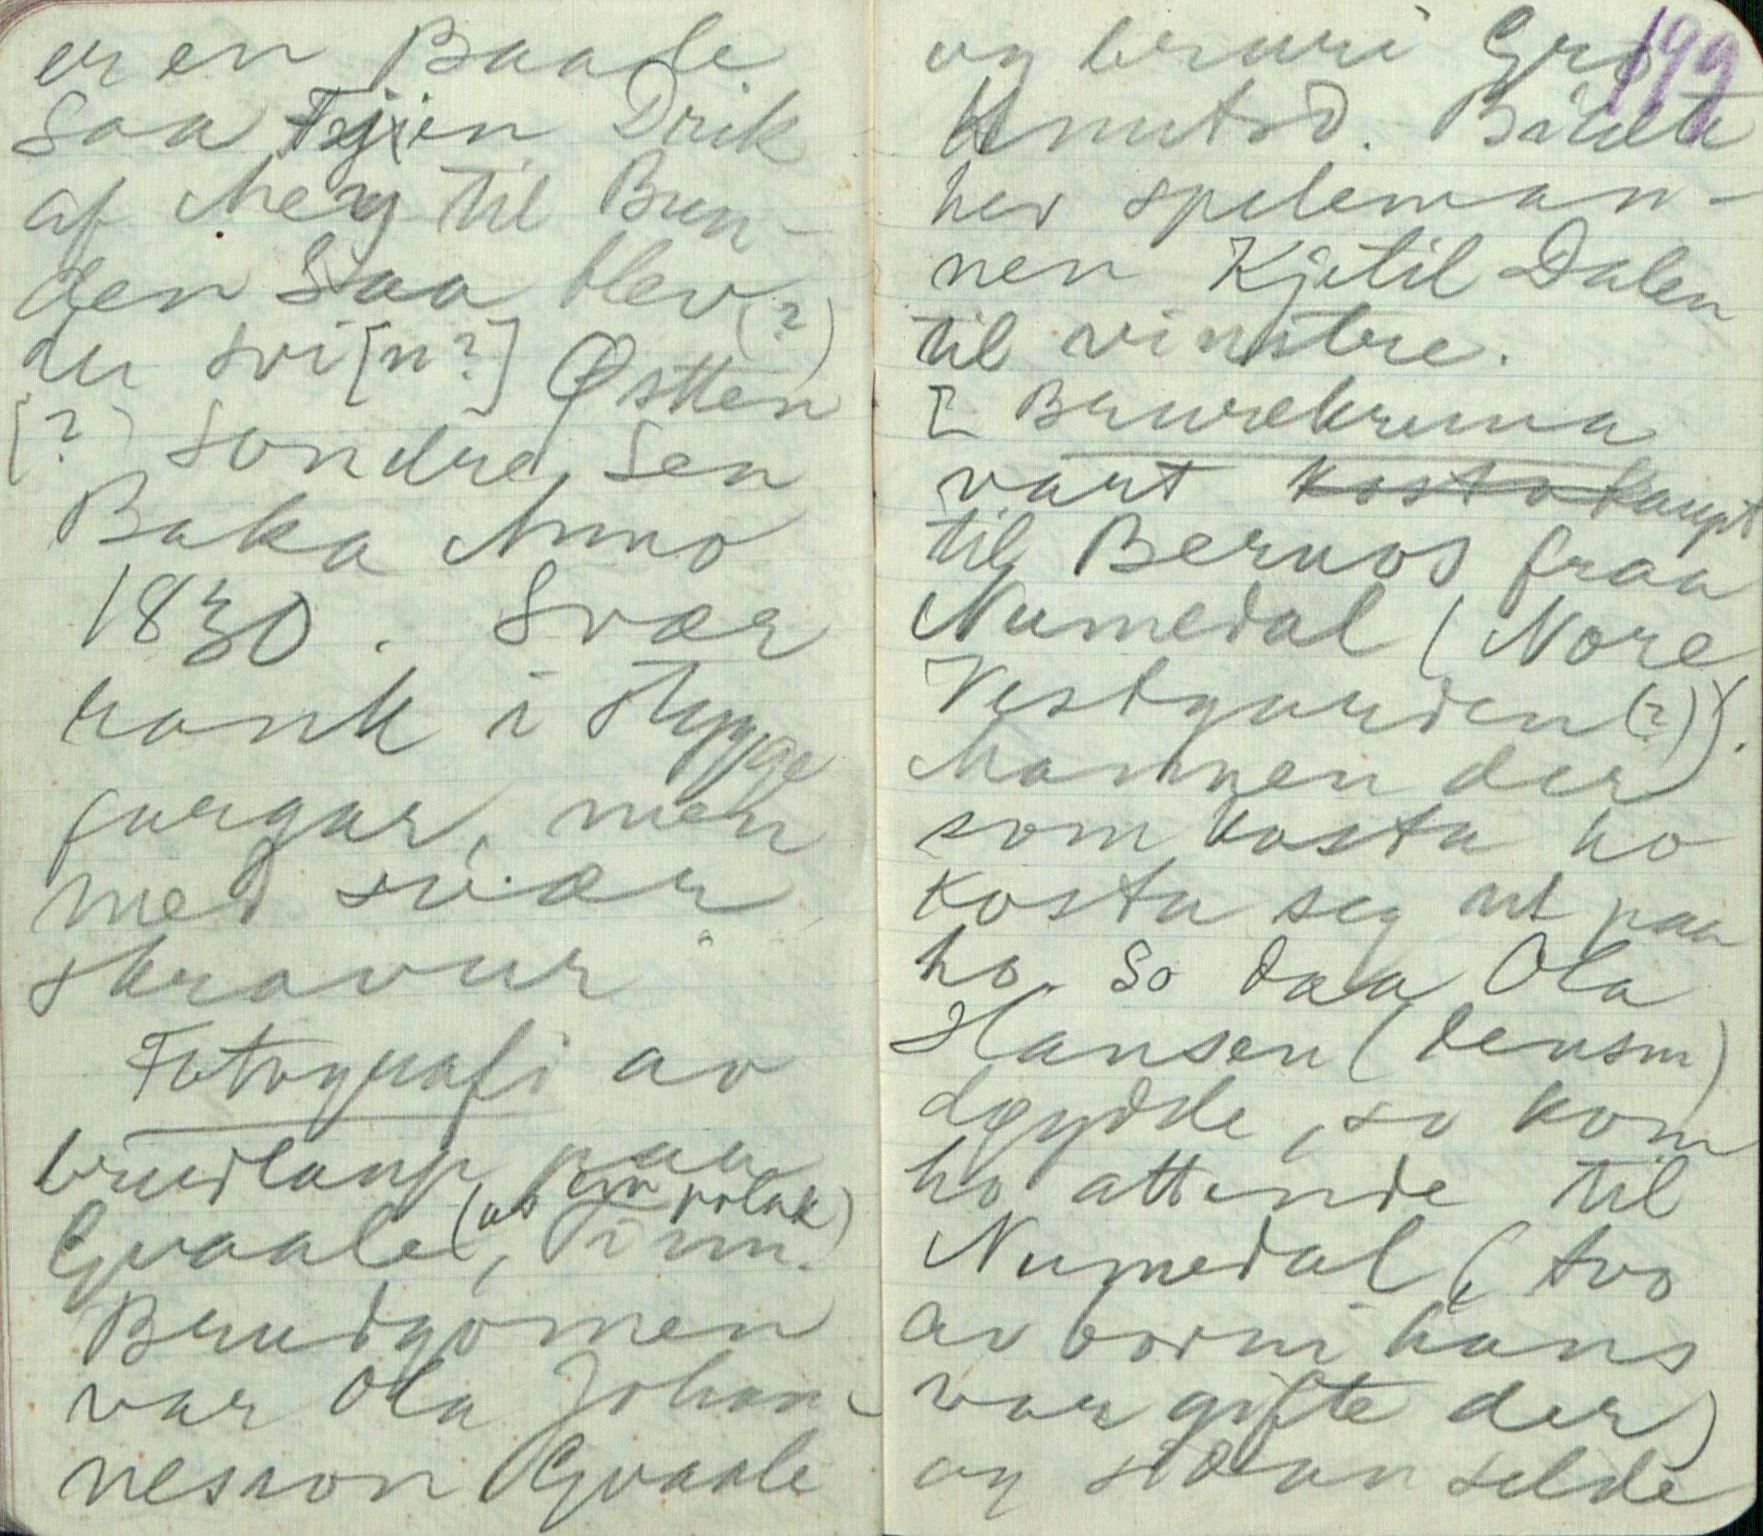 er en Baade
Saa Fejin Drik
af Meg til Bun-
den Saa blev (?)
du svi[n?] Østten
[?] Sondre Sen
Baka Anno
1830. Svær
rank i stygge
fargar, men
med svær
skravur
Fotografi av
brudlaup paa
(ut polak)
Gvaale, Tinn.
Brudgomen
var Ola Johan-
nesson Gvaale
199
og bruri Gro
Knutsd. Bildte
her speleman-
nen Kjetil Dalen
til vinstre.
[ Brurekruna
vart kosta kaupt
til Bernos fraa
Numedal (Nore
Vestgarden (?)).
Mannen der
som kosta ho
kosta seg ut paa
ho. So daa Ola
Hansen (densm)
døydde, so kom
ho attende til
Numedal (tvo
av borni hans
var gifte der)
og sidan selde